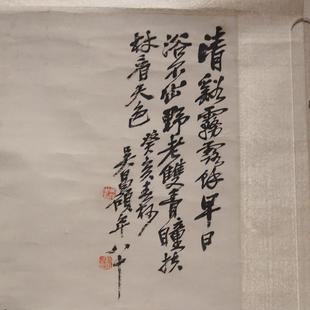 清谿霧霽俗早日
浴不仙野老雙青瞳扶
林看天色
癸亥春杪
吳昌碩年八十